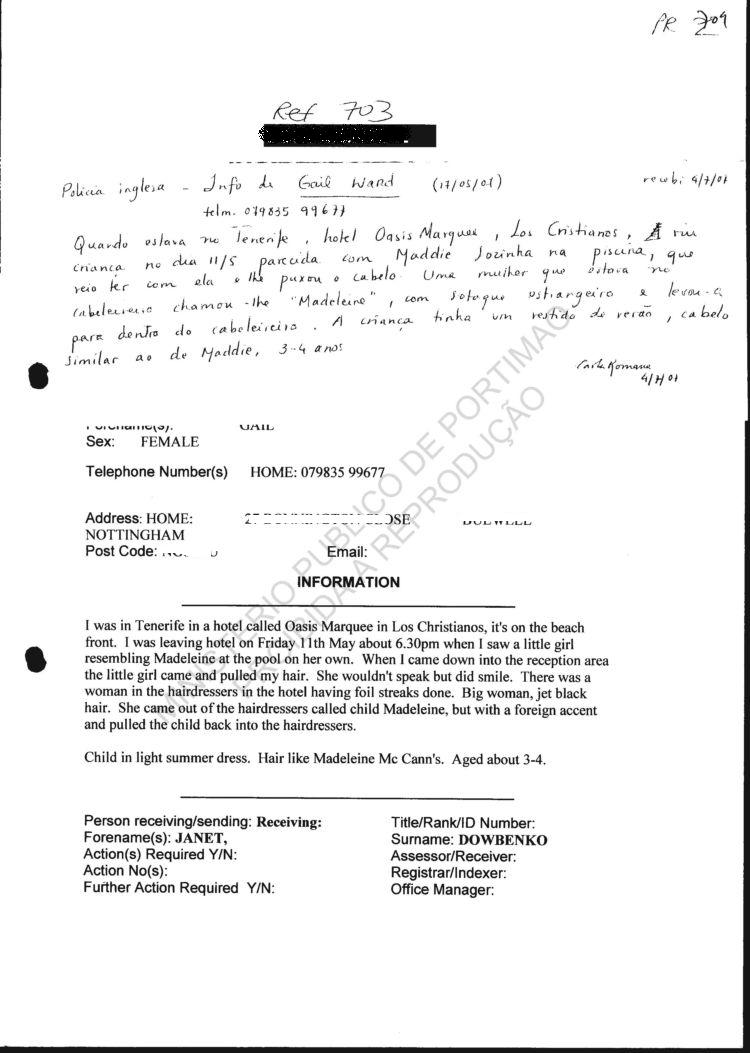 PR 209
Ref 703
Policia inglesa - Info de Gail Ward (17/05/07) recebi 4/7/07
telm. 079835 99677
Quando estava no Tenerife, hotel Oasis Marquee, Los Cristianos, vi
criança no dia 11/5 parecida com Maddie sozinha na piscina, que
veio ter com ela e lhe puxou o cabelo. Uma mulher que estava no
cabeleireiro chamou-lhe "Madeleine", com sotaque estrangeiro e levou-a
para dentro do cabeleireiro. A criança tinha um vestido de verão, cabelo
similar ao de Maddie, 3-4 anos
4/7/07
Forename(s): GAIL
Sex: FEMALE
Telephone Number(s) HOME: 079835 99677
Address: HOME: CLOSE BULWELL
NOTTINGHAM
Post Code: Email:
INFORMATION
I was in Tenerife in a hotel called Oasis Marquee in Los Christianos, it's on the beach
front. I was leaving hotel on Friday 11th May about 6.30pm when I saw a little girl
resembling Madeleine at the pool on her own. When I came down into the reception area
the little girl came and pulled my hair. She wouldn't speak but did smile. There was a
woman in the hairdressers in the hotel having foil streaks done. Big woman, jet black
hair. She came out of the hairdressers called child Madeleine, but with a foreign accent
and pulled the child back into the hairdressers.
Child in light summer dress. Hair like Madeleine Mc Cann's. Aged about 3-4.
Person receiving/sending: Receiving: Title/Rank/ID Number:
Forename(s): JANET, Surname: DOWBENKO
Action(s) Required Y/N: Assessor/Receiver:
Action No(s): Registrar/Indexer:
Further Action Required Y/N: Office Manager:
MINISTERIO PUBLICO DE PORTIMAO
PROIBIDA A REPRODUÇÃO